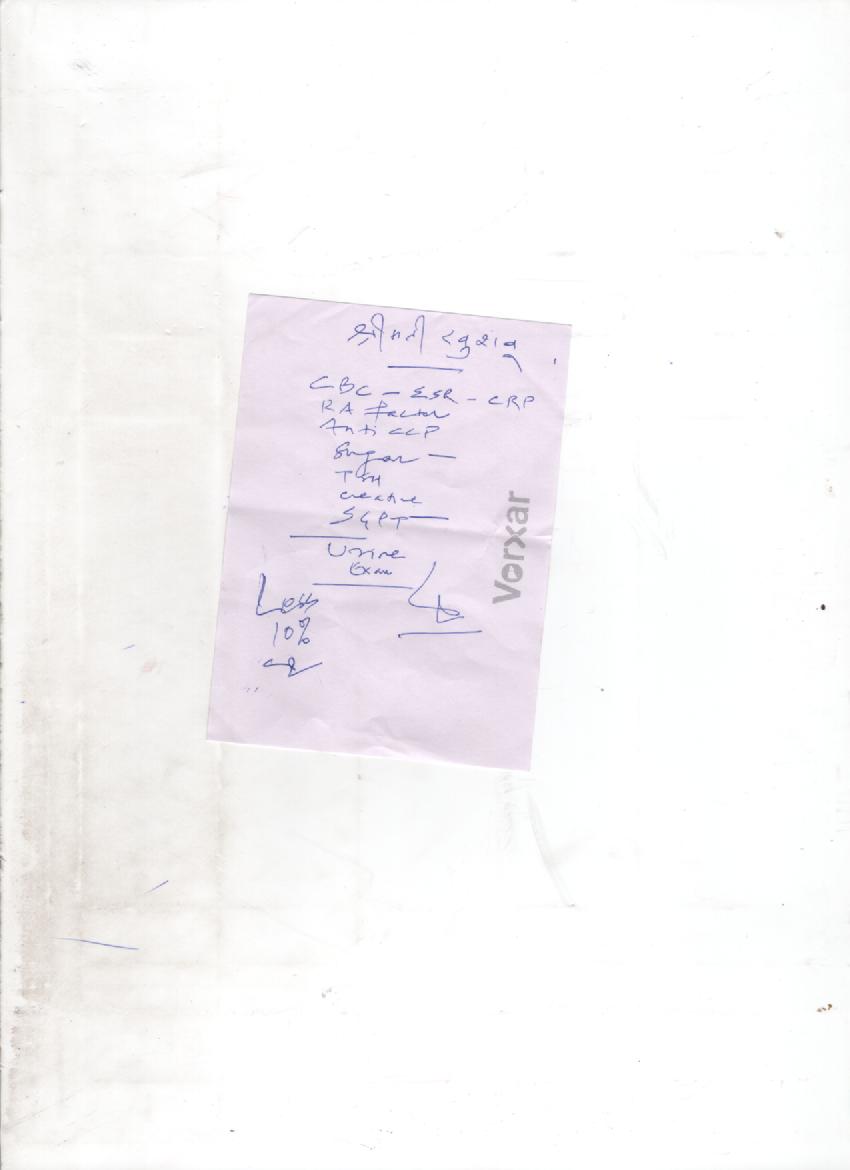 श्रीमती
CBC - ESR - CRP
RA factor
Anti CCP
Sugar -
TSH
creatine
SGPT
Urine
Exam
Less
10%
Vorxar